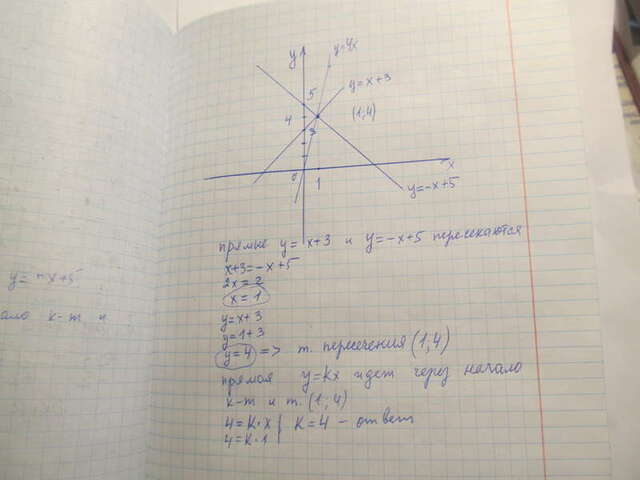 y
y=4x
y=x+3
5
4
(1;4)
3
0
1
x
y=-x+5
прямые y= x+3 и y=-x+5 пересекаются
x+3=-x+5
2x=2
x=1
y=x+3
y=1+3
y=4 => т. пересечения (1;4)
прямая y=kx идет через начало
к-т и т. (1;4)
4=k·x | k=4 - ответ
4=k·1
y=-x+5
ало к-т и